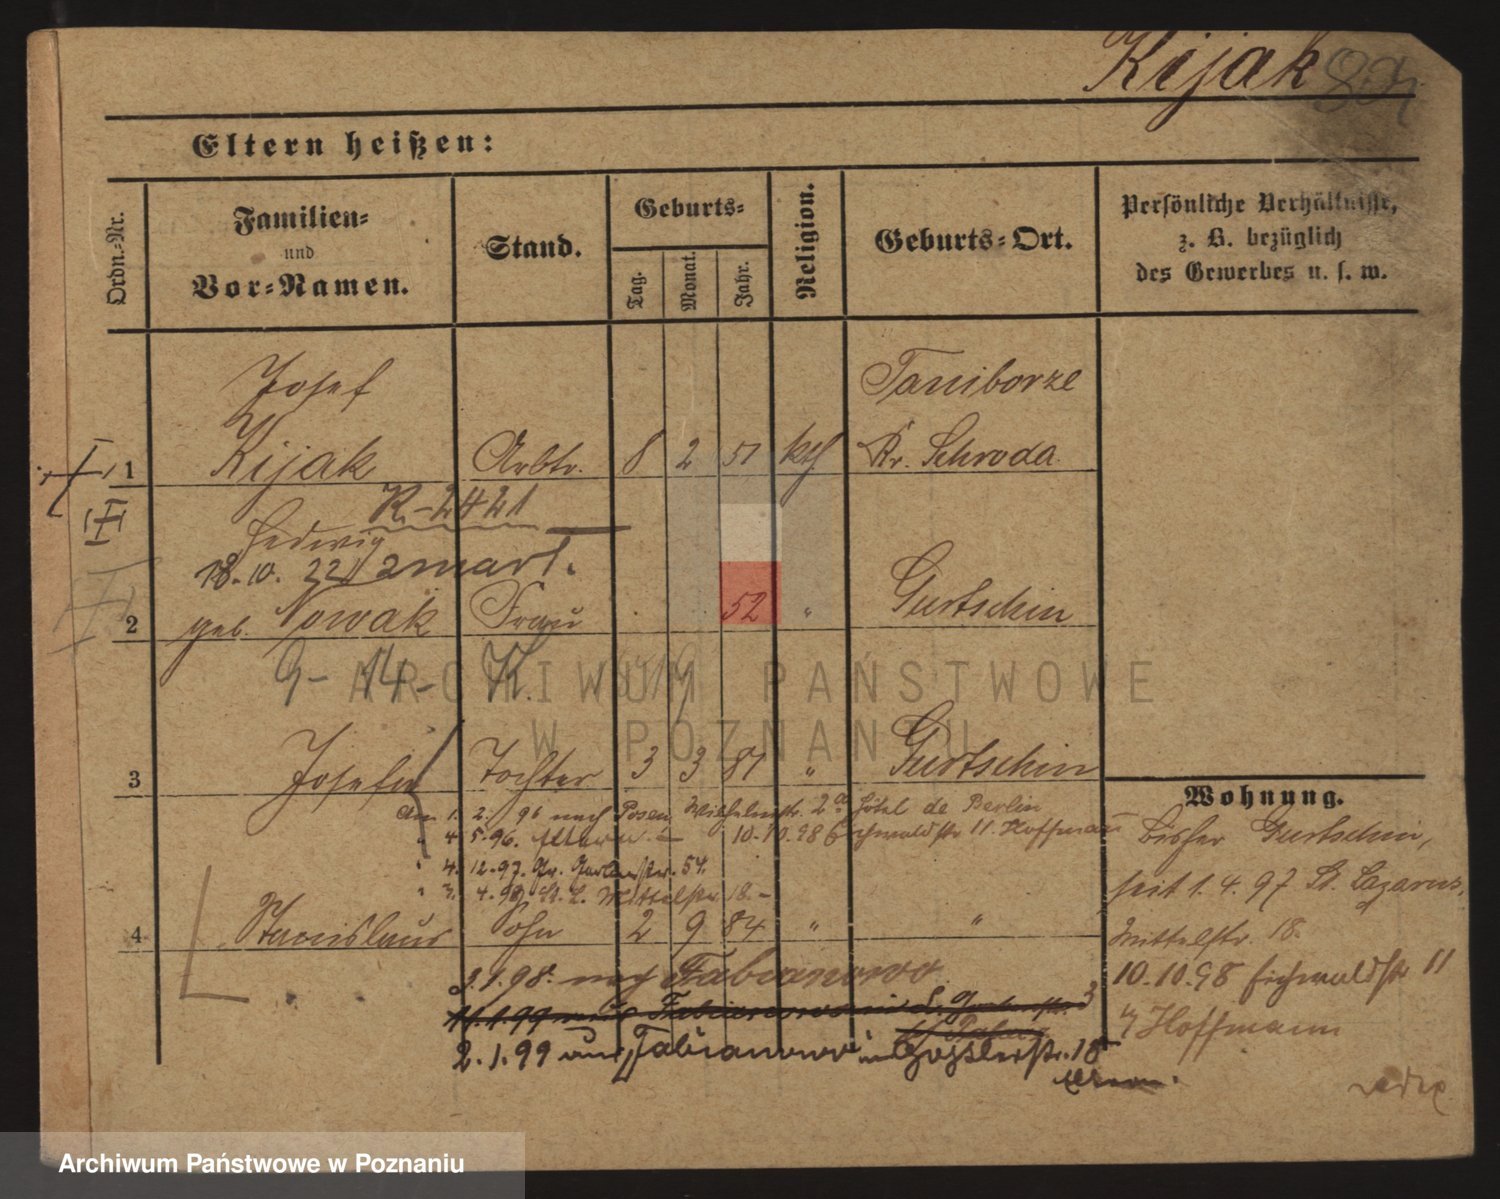 Kijak
Eltern heißen:
Ordn.-Nr.
Familien-
und
Vor-Namen.
Stand.
Geburts-
Tag.
Monat.
Jahr.
Religion.
Geburts-Ort.
Persönliche Verhältnisse,
z. B. bezüglich
des Gewerbes u. s. w.
Josef
Taniborze
1 Kijak Arbtr. 8 2 51 kth Kr. Schroda
K.-2421
Hedwig
18.10.22
2 geb. Nowak Frau 52 " Gurtschin
9-14-K.
3 Josefa Tochter 3 3 81 " Gurtschin
Am 1. 2. 96 nach Posen, Wilhelmstr. 2a Hôtel de Berlin
" 4. 5. 96. Eltern 10.10.98 Eichwaldstr 11. Hoffmann
" 4. 12. 97. Gr. Gerberstr. 54.
" 3. 4. 98. St. L. Mittelstr. 18.-
4 Stanislaus Sohn 2 9 84 " "
3.1.98. nach Fabianowo
2.1.99 aus Fabianowo in 18
Eltern.
Wohnung.
bisher Gurtschin,
seit 1.4.97 St. Lazarus,
Mittelstr. 18.
10.10.98 Eichwaldstr 11
b/ Hoffmann
ARCHIWUM PAŃSTWOWE
W POZNANIU
Archiwum Państwowe w Poznaniu